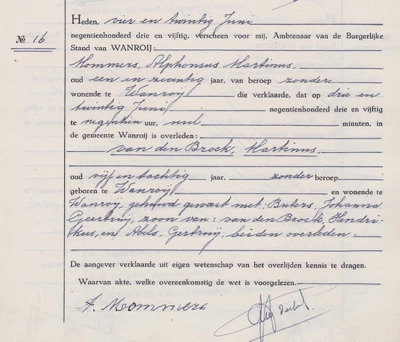 Heden, vier en twintig Juni
negentienhonderd drie en vijftig, verscheen voor mij, Ambtenaar van de Burgerlijke
№ 16
Stand van WANROIJ:
Mommers, Alphonsus Martinus,
oud een en zeventig jaar, van beroep zonder
wonende te Wanroij die verklaarde, dat op drie en
twintig Juni, negentienhonderd drie en vijftig
te negentien uur, nul minuten, in
de gemeente Wanroij is overleden:
van den Broek, Martinus,
oud vijf en tachtig jaar, zonder beroep
geboren te Wanroij en wonende te
Wanroij, gehuwd geweest met: Bulers, Johanna
Geertruij, zoon van: van den Broek, Hendri-
kus, en Abils, Gertruij, beiden overleden.
De aangever verklaarde uit eigen wetenschap van het overlijden kennis te dragen.
Waarvan akte, welke overeenkomstig de wet is voorgelezen.
A. Mommers